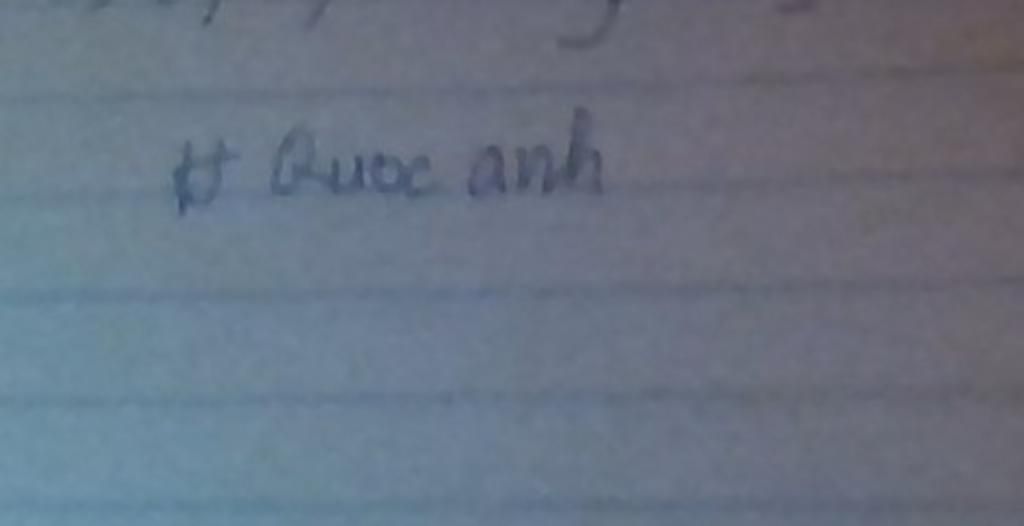 # Quoc anh